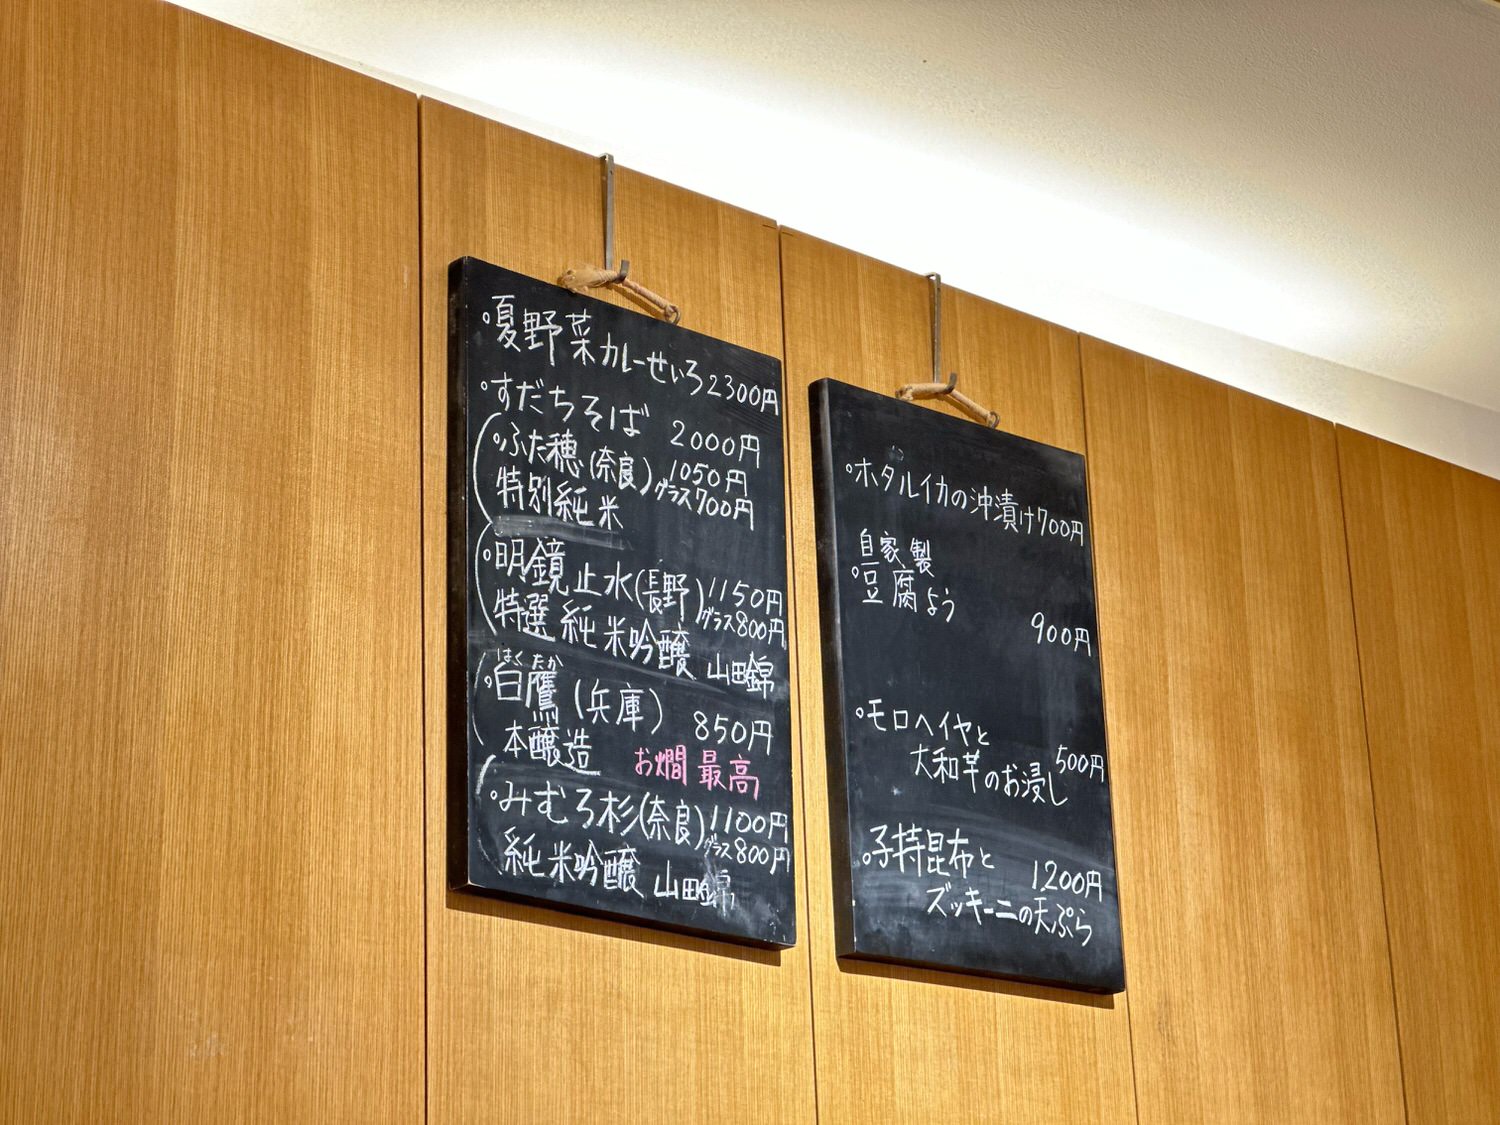 °夏野菜カレーせいろ2300円
°すだちそば 2000円
°ふた穂(奈良)1050円
グラス700円
特別純米
°明鏡止水(長野)1150円
グラス800円
特選純米吟醸 山田錦
はくたか
°白鷹(兵庫) 850円
本醸造 お燗最高
°みむろ杉(奈良)1100円
グラス800円
純米吟醸 山田錦
°ホタルイカの沖漬け700円
自家製
°豆腐よう
900円
°モロヘイヤと
大和芋のお浸し 500円
°子持昆布と 1,200円
ズッキーニの天ぷら